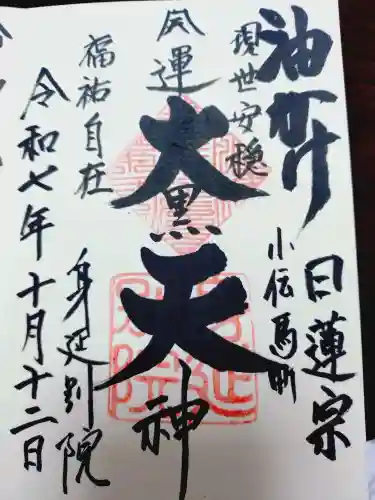 油かけ
日蓮宗
小伝馬町
現世安穏
開運
大黒天神
福祐自在
身延別院
令和七年十月十二日
身延別院